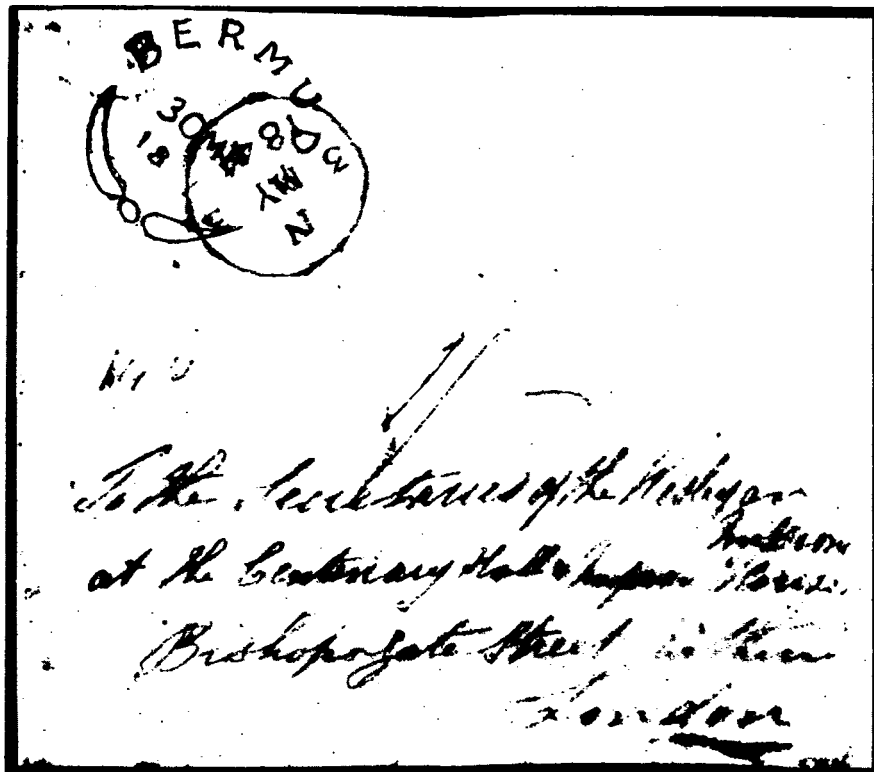 BERMUDA
30 MR
18
8
MY
N
To the Secretaries of the Wesleyan
Mission
at the Centenary Hall & Mission House
Bishopsgate Street within
London